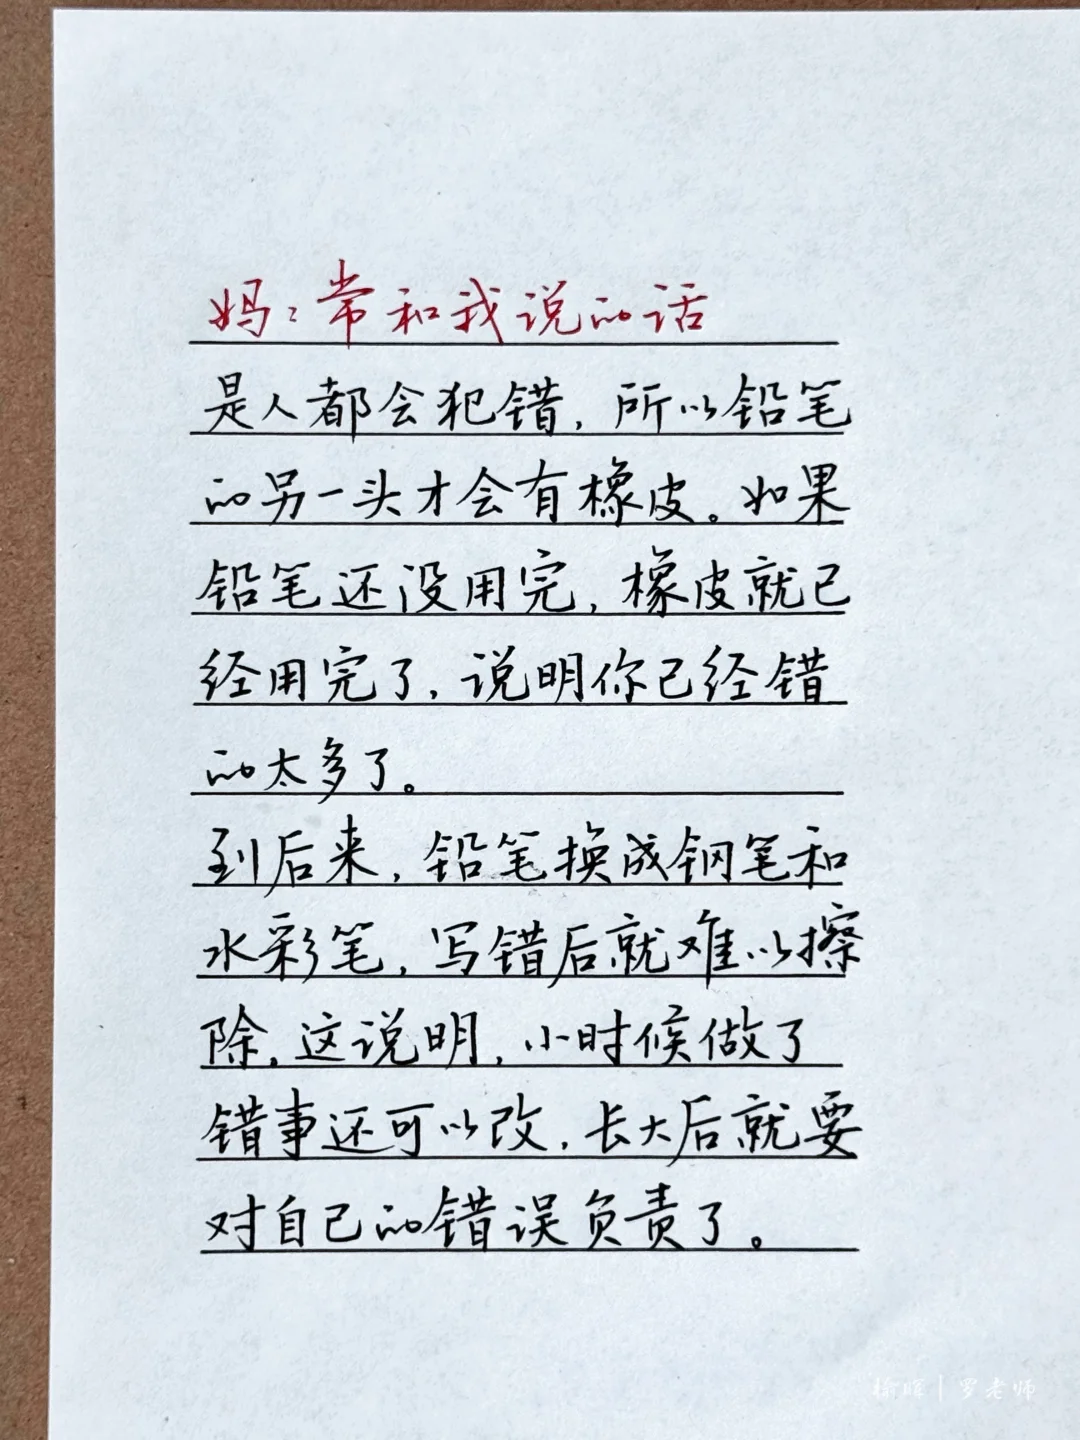 妈:常和我说的话
是人都会犯错,所以铅笔
的另一头才会有橡皮。如果
铅笔还没用完,橡皮就已
经用完了,说明你已经错
的太多了。
到后来,铅笔换成钢笔和
水彩笔,写错后就难以擦
除,这说明,小时候做了
错事还可以改,长大后就要
对自己的错误负责了。
榆晖|罗老师